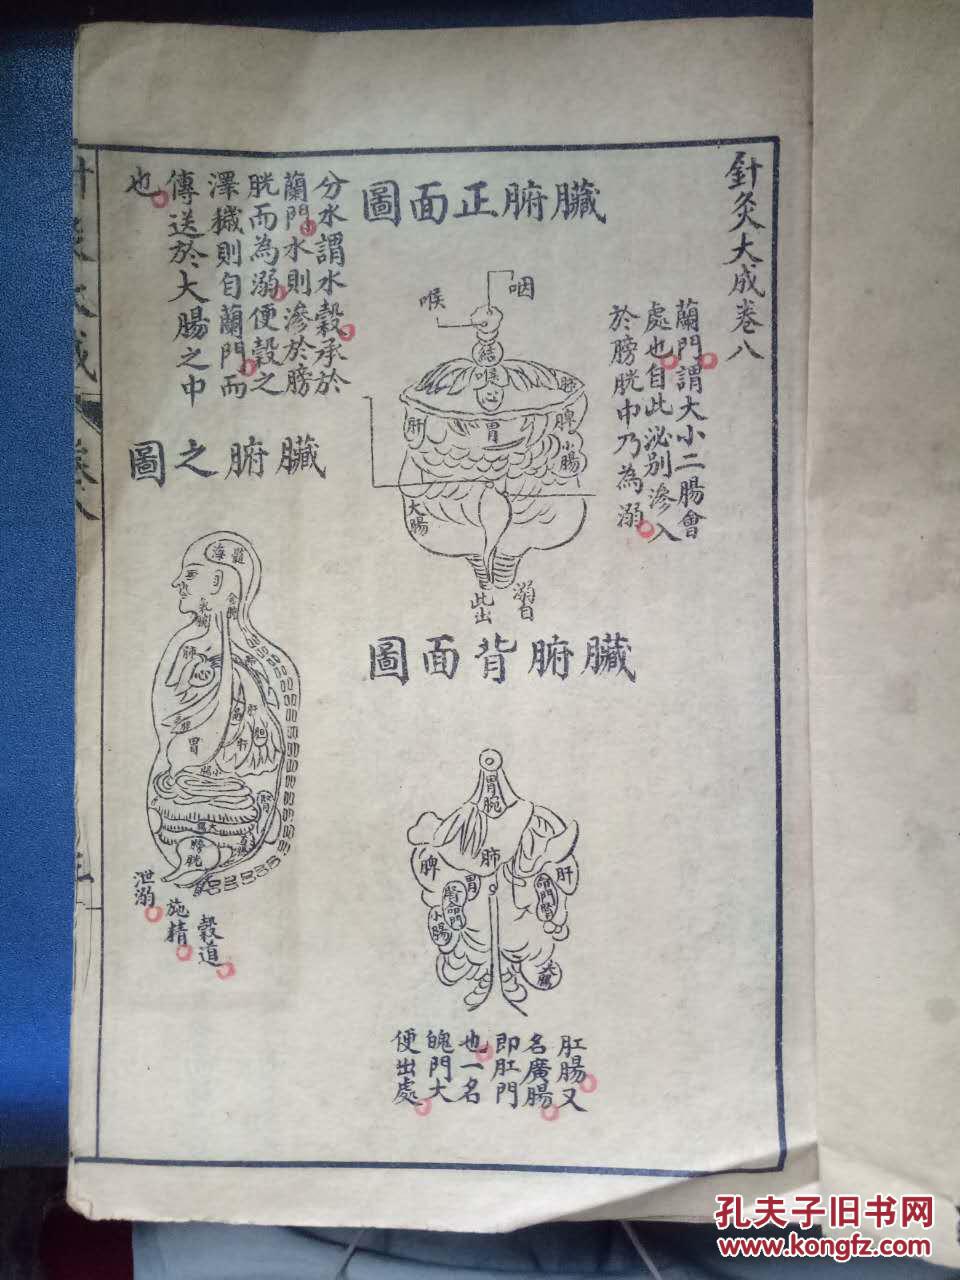 針灸大成卷八
臟腑正面圖
蘭門謂大小二腸會
處也自此泌別滲入
於膀胱中乃為溺
咽
喉
結
喉
心
肺
肝
胃
脾
小腸
大腸
此出
分水謂水穀承於
蘭門水則滲於膀
胱而為溺便穀之
滓穢則自蘭門而
傳送於大腸之中
也
臟腑之圖
髓
海
肺
胃
肝
膀胱
泄溺
施精
穀道
臟腑背面圖
胃脘
肺
脾
胃
肝
腎
命門
命門
腎
小腸
大腸
肛腸又
名廣腸
即肛門
也一名
魄門大
便出處
孔夫子旧书网
www.kongfz.com